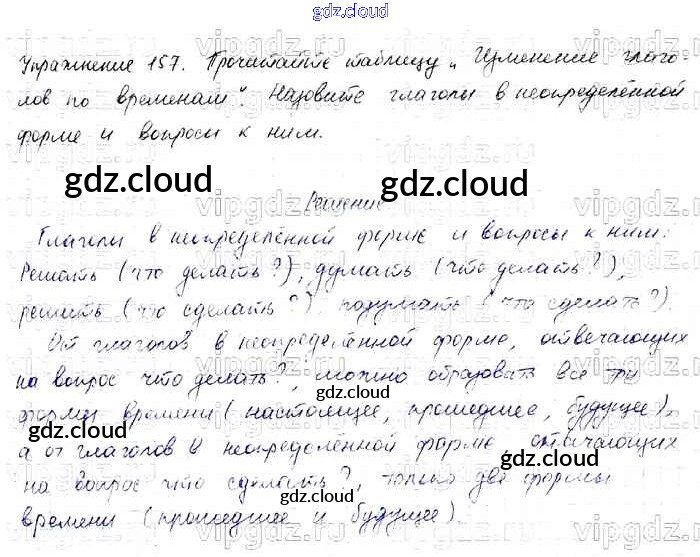 gdz.cloud
Упражнение 157. Прочитайте таблицу „Изменение глаго-
лов по временам". Назовите глаголы в неопределённой
форме и вопросы к ним.
gdz.cloud gdz.cloud
Решение
Глаголы в неопределённой форме и вопросы к ним:
Решать (что делать?), думать (что делать?),
решить (что сделать?), подумать (что сделать?).
gdz.cloud gdz.cloud
От глаголов в неопределённой форме, отвечающих
на вопрос что делать?, можно образовать все три
формы времени (настоящее, прошедшее, будущее),
gdz.cloud gdz.cloud
а от глаголов в неопределённой форме отвачающих
gdz.cloud
на вопрос что сделать?, только две формы
gdz.cloud
времени (прошедшее и будущее).